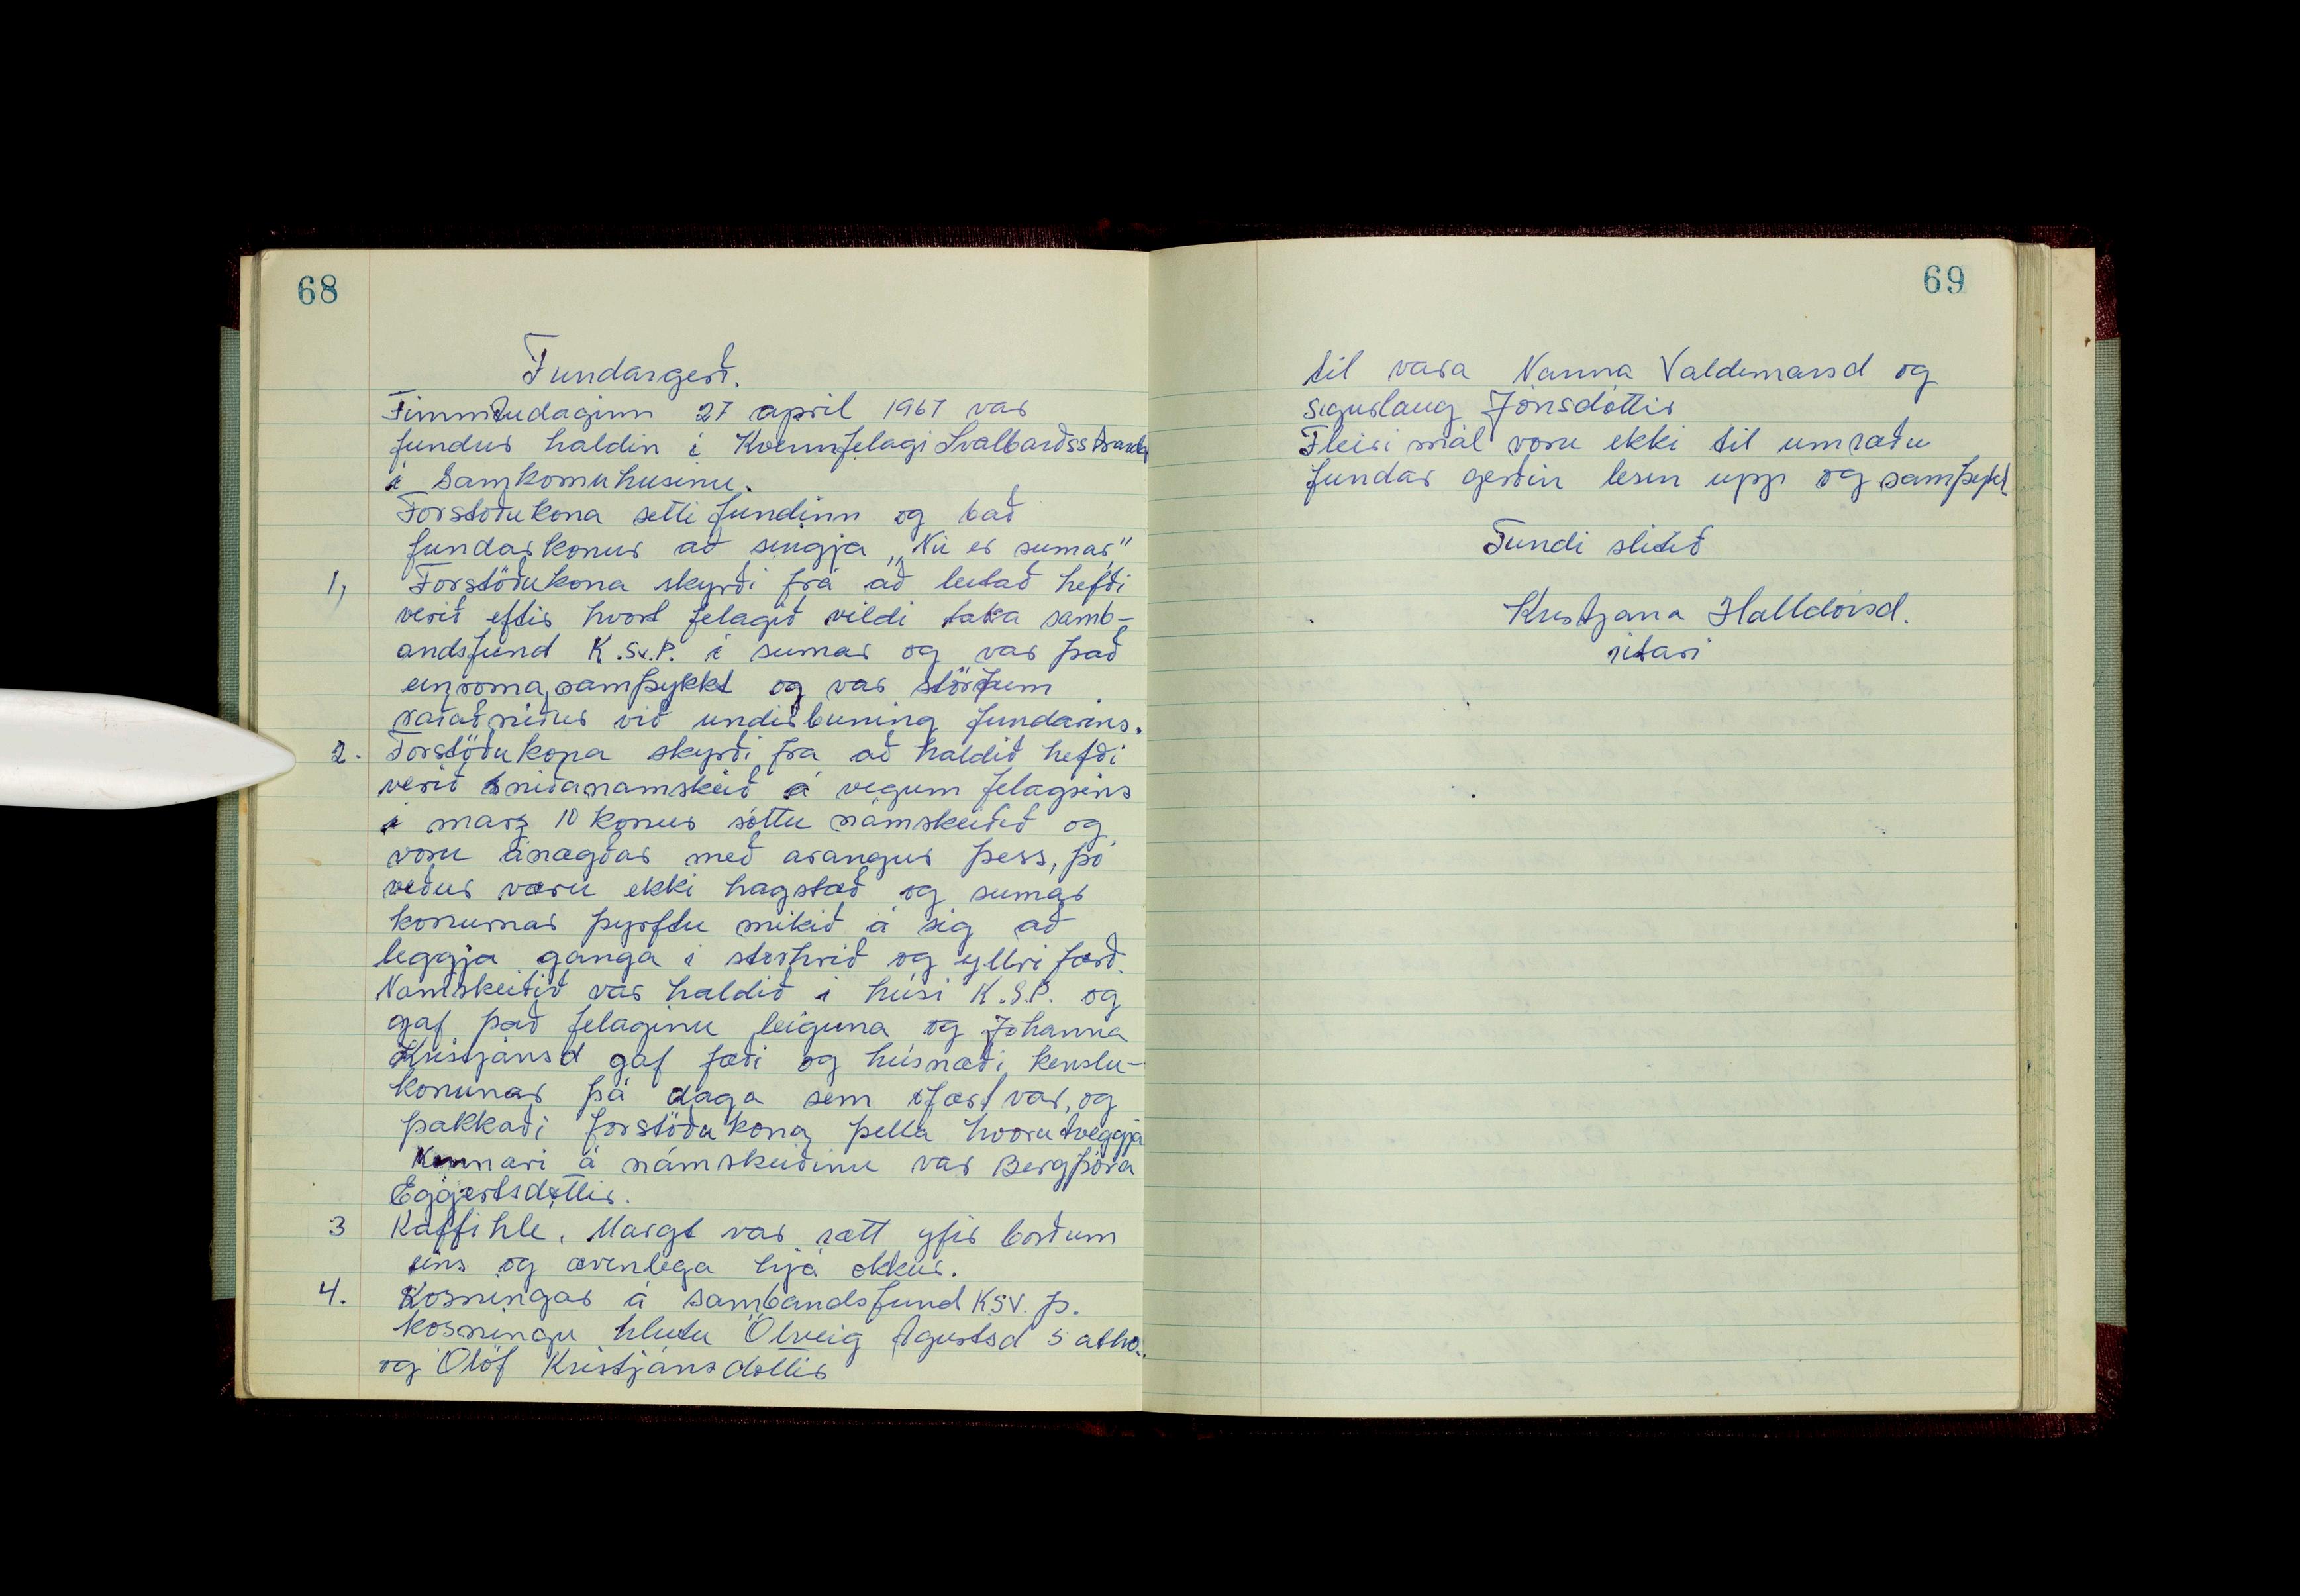 68
Fundargerð.
Fimmtudaginn 27 april 1967 var
fundur haldin i Kvennfelagi Svalbarðsstrandar
i Samkomuhusinu.
Forstöðukona setti fundinn og bað
fundarkonur að singja „Nú er sumar"
1, Forstöðukona skyrði frá að leitað hefði
verið eftir hvort felagið vildi taka samb-
andsfund K.Sv.Þ. i sumar og var það
einroma samþykkt og var störfum
raðað niður við undirbuning fundarins.
2. Forstöðukona skyrði fra að haldið hefði
verið sniðanamskeið á vegum felagsins
i marz 10 konur sóttu námskeiðið og
voru ánægðar með arangur þess, þó
veður væru ekki hagstæð og sumar
konurnar þyrftu mikið á sig að
leggja ganga i storhrið og yllri færð.
Namskeiðið var haldið i húsi K.S.Þ. og
gaf það felaginu leiguna og Johanna
Kristjánsd gaf fæði og húsnæði kenslu-
konunar þá daga sem ofært var, og
þakkaði forstöðukona þetta hvorutveggja
Kennari á námskeiðinu var Bergþóra
Eggertsdottir.
3 Kaffihle. Margt var rætt yfir borðum
eins og ævenlega hjá okkur.
4. Kosningar á sambandsfund KSV. Þ.
kosningu hlutu Ölveig Agustsd 5 atkv.
og Olöf Kristjánsdottir
69
til vara Nanna Valdemarsd og
Sigurlaug Jónsdóttir
Fleiri mál voru ekki til umræðu
fundar gerðin lesin upp og samþykt.
Fundi slitið
Kristjana Halldórsd.
ritari